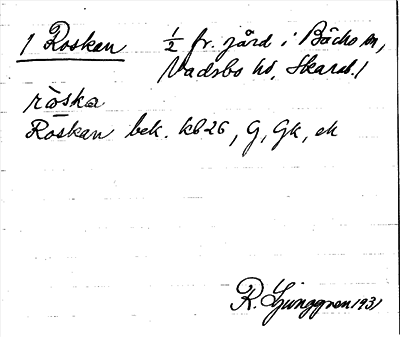 1 Roskan ½ fr. jård i Bäcks sn,
Vadsbo hd, Skarab. l
ròska
Roskan bek. kb 26, G, Gk, ek
R. Ljunggren 1931